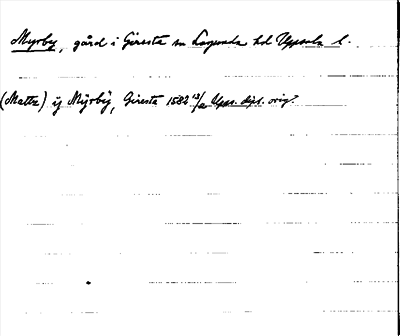 Myrby, gård i Giresta sn Lagunda hd Uppsala l.
(Matts) ij Mÿrbÿ, Giresta 1582 13/2 Upps. dipl. orig.